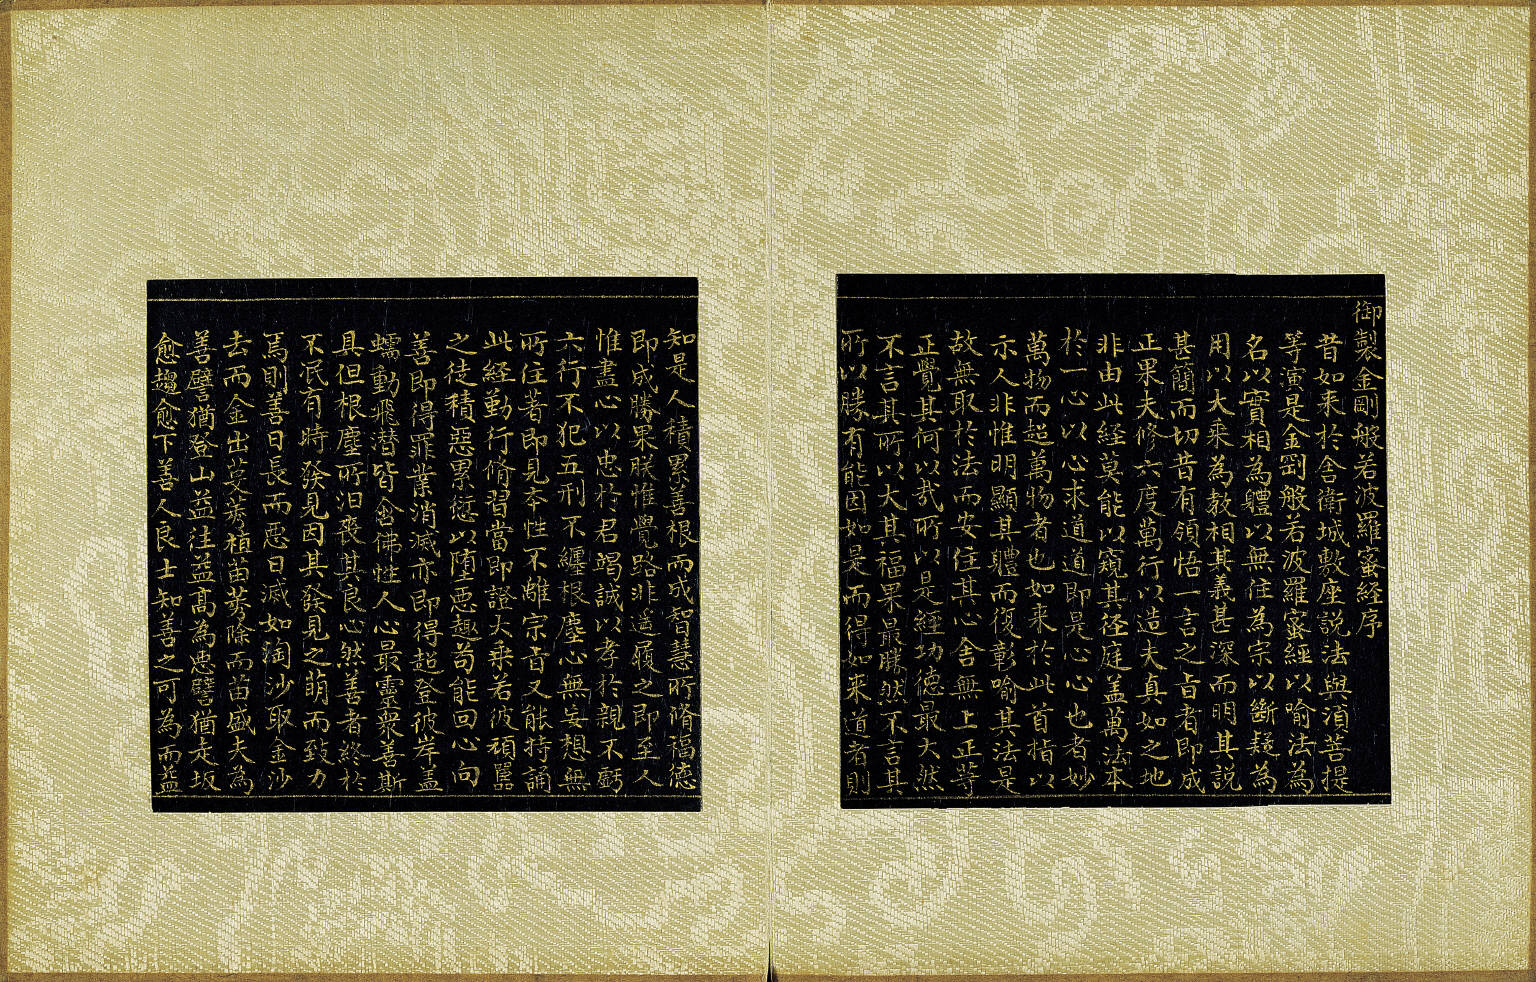 御製金剛般若波羅蜜経序
昔如来於舎衛城敷座説法與湏菩提
等演是金剛般若波羅蜜經以喻法為
名以實相為體以無住為宗以斷疑為
用以大乘為教相其義甚深而明其説
甚簡而切昔有領悟一言之旨者即成
正果夫修六度萬行以造夫真如之地
非由此経莫能以窺其径庭盖萬法本
於一心以心求道道即是心心也者妙
萬物而超萬物者也如来於此首指以
示人非惟明顯其體而復彰喻其法是
故無取於法而安住其心舎無上正等
正覺其何以㢤所以是経功徳最大然
不言其所以大其福果最勝然不言其
所以勝有能因如是而得如来道者則
知是人積累善根而成智慧所脩福德
即成勝果朕惟覺路非遥履之即至人
惟盡心以忠於君竭誠以孝於親不虧
六行不犯五刑不纏根塵心無妄想無
所住著即見夲性不離宗旨又能持誦
此経勤行脩習當即證大乘若彼頑嚚
之徒積惡累愆以堕惡趣苟能回心向
善即得罪業消滅亦即得超登彼岸盖
蠕動飛潜皆含佛性人心最靈衆善斯
具但根塵所汩喪其良心然善者終於
不泯有時發見因其發見之萌而致力
焉則善日長而惡日滅如淘沙取金沙
去而金出芟莠植苗莠除而苗盛夫為
善譬猶登山益往益髙為惡譬猶走坂
愈趨愈下善人良士知善之可為而益